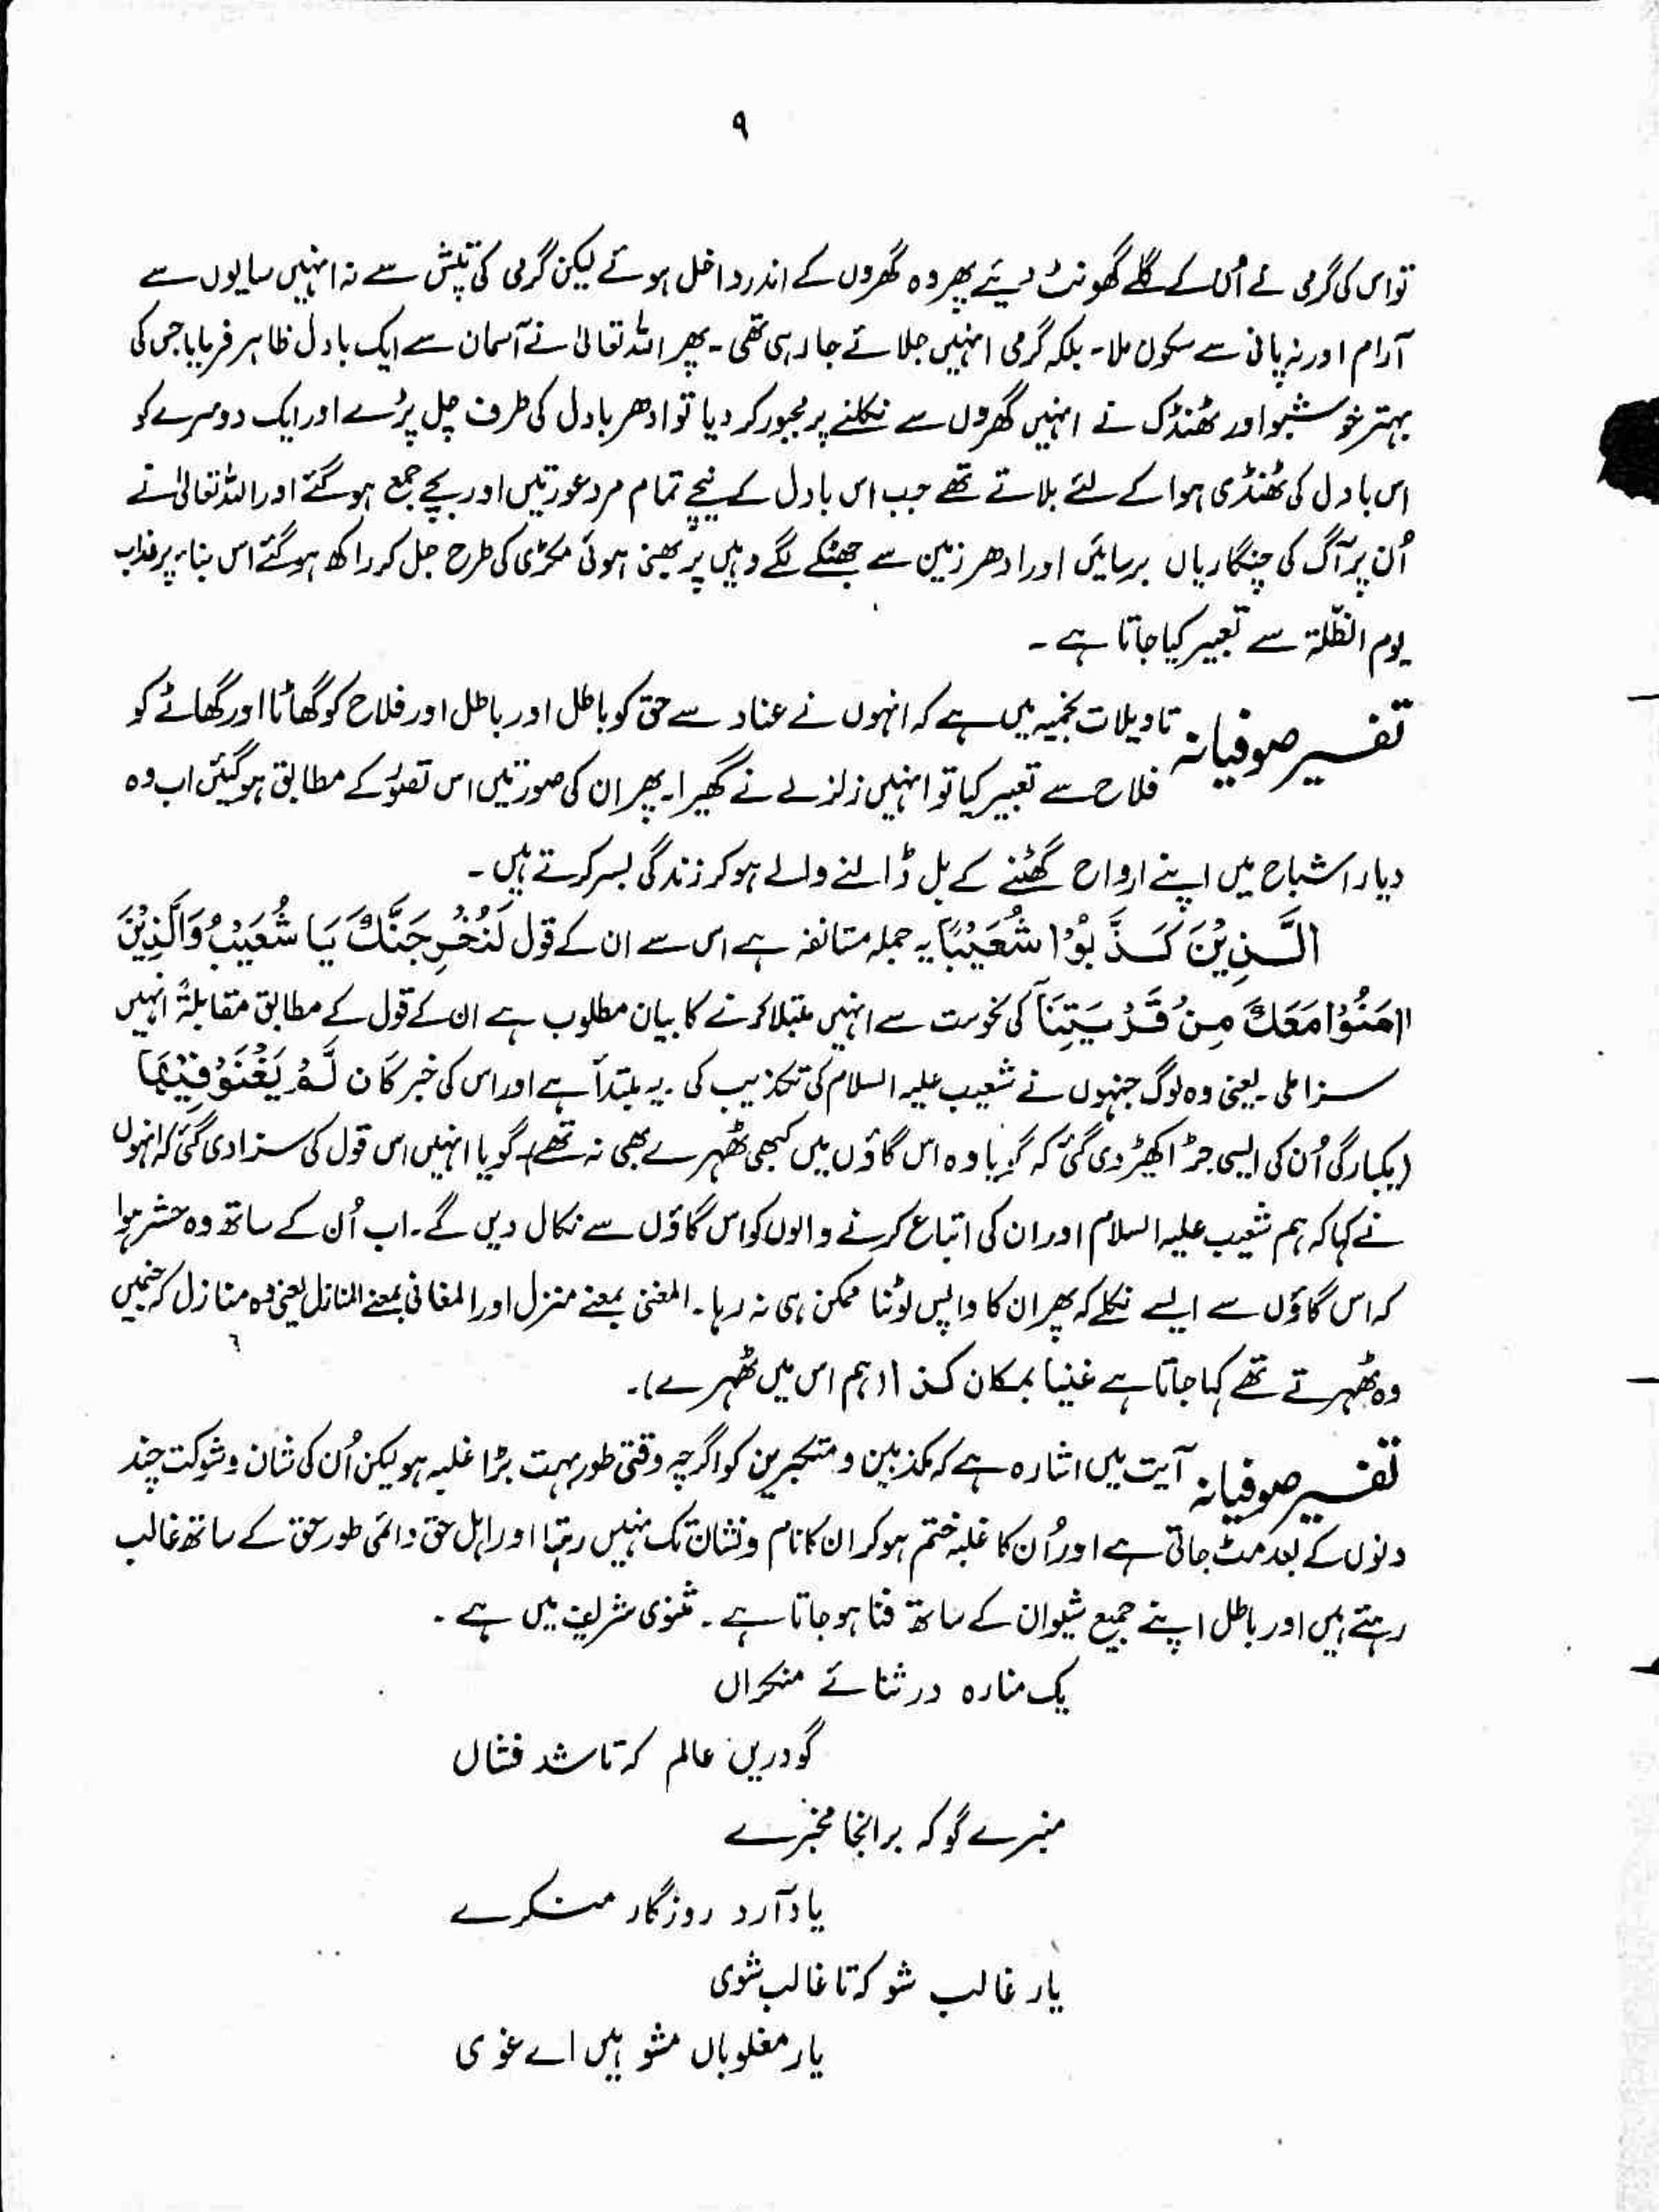 ۹
تو اس کی گرمی نے اُن کے گلے گھونٹ دیئے پھر وہ گھروں کے اندر داخل ہوئے لیکن گرمی کی تپش سے نہ انہیں سایوں سے
آرام اور نہ پانی سے سکون ملا۔ بلکہ گرمی انہیں جلائے جا رہی تھی۔ پھر اللہ تعالیٰ نے آسمان سے ایک بادل ظاہر فرمایا جس کی
بہتر خوشبو اور ٹھنڈک نے انہیں گھروں سے نکلنے پر مجبور کر دیا تو ادھر بادل کی طرف چل پڑے اور ایک دوسرے کو
اس بادل کی ٹھنڈی ہوا کے لئے بلاتے تھے جب اس بادل کے نیچے تمام مرد عورتیں اور بچے جمع ہو گئے اور اللہ تعالیٰ نے
اُن پر آگ کی چنگاریاں برسائیں اور ادھر زمین سے جھٹکے لگے وہیں پر بھنی ہوئی مکڑی کی طرح جل کر راکھ ہو گئے اس بناء پر عذاب
یوم الظّلۃ سے تعبیر کیا جاتا ہے ۔
تفسیر صوفیانہ تاویلات نجمیہ میں ہے کہ انہوں نے عناد سے حق کو باطل اور باطل اور فلاح کو گھاٹا اور گھاٹے کو
فلاح سے تعبیر کیا تو انہیں زلزلے نے گھیرا۔ پھر ان کی صورتیں اس تصوّر کے مطابق ہو گئیں اب وہ
دیار اشباح میں اپنے ارواح گھٹنے کے بل ڈالنے والے ہو کر زندگی بسر کرتے ہیں ۔
الَّذِیْنَ کَذَّبُوْا شُعَیْبًا یہ جملہ مستانفہ ہے اس سے ان کے قول لَنُخْرِجَنَّكَ یَا شُعَیْبُ وَالَّذِیْنَ
اٰمَنُوْا مَعَكَ مِنْ قَرْیَتِنَآ کی نحوست سے انہیں مبتلا کرنے کا بیان مطلوب ہے ان کے قول کے مطابق مقابلۃً انہیں
سزا ملی۔ یعنی وہ لوگ جنہوں نے شعیب علیہ السلام کی تکذیب کی۔ یہ مبتدأ ہے اور اس کی خبر کَان لَّمْ یَغْنَوْ فِیْہَا
(یکبارگی اُن کی ایسی جڑ اکھیڑ دی گئی کہ گویا وہ اس گاؤں میں کبھی ٹھہرے بھی نہ تھے) گویا انہیں اس قول کی سزا دی گئی کہ انہوں
نے کہا کہ ہم شعیب علیہ السلام اور ان کی اتباع کرنے والوں کو اس گاؤں سے نکال دیں گے۔ اب اُن کے ساتھ وہ حشر ہوا
کہ اس گاؤں سے ایسے نکلے کہ پھر ان کا واپس لوٹنا ممکن ہی نہ رہا۔ المغنیٰ بمعنے منزل اور المغانی بمعنے المنازل یعنی وہ منازل کہ جنمیں
وہ ٹھہرتے تھے کہا جاتا ہے غنینا بمکان کذا (ہم اس میں ٹھہرے)۔
تفسیر صوفیانہ آیت میں اشارہ ہے کہ مکذبین و متکبرین کو اگرچہ وقتی طور بہت بڑا غلبہ ہو لیکن اُن کی شان و شوکت چند
دنوں کے بعد مٹ جاتی ہے اور اُن کا غلبہ ختم ہو کر ان کا نام و نشان تک نہیں رہتا اور اہل حق دائمی طور حق کے ساتھ غالب
رہتے ہیں اور باطل اپنے جمیع شیوان کے ساتھ فنا ہو جاتا ہے ۔ مثنوی شریف میں ہے ۔
یک منارہ در ثنائے منکراں
گو دریں عالم کہ تا شد فشاں
منبرے گو کہ بر انجا مخبرے
یاد آرد روزگار منکرے
یار غالب شو کہ تا غالب شوی
یار مغلوباں مشو ہیں اے غوی